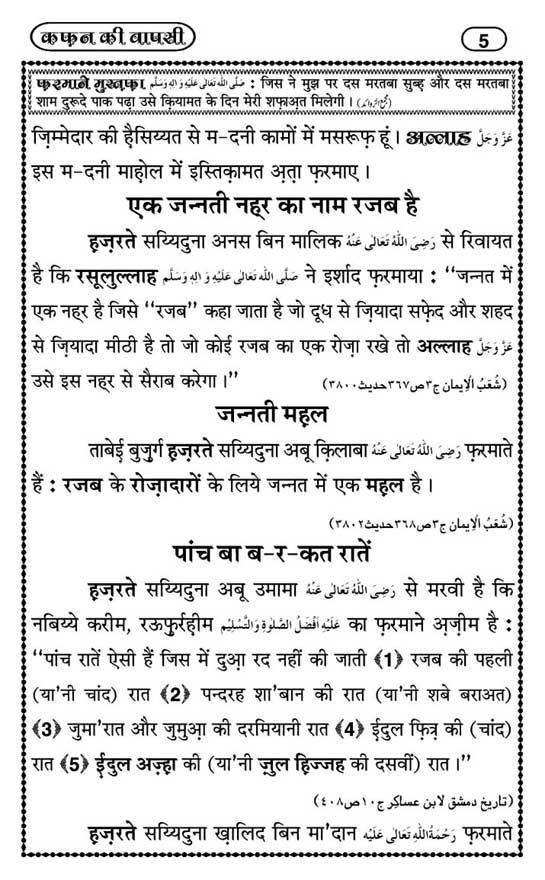 कफ़न की वापसी 5
फ़रमाने मुस्तफ़ा صَلَّى اللّٰهُ تَعَالٰى عَلَيْهِ وَاٰلِهٖ وَسَلَّم : जिस ने मुझ पर दस मरतबा सुब्ह और दस मरतबा
शाम दुरूदे पाक पढ़ा उसे क़ियामत के दिन मेरी शफ़ाअ़त मिलेगी । (مجمع الزوائد)
ज़िम्मेदार की है़सिय्यत से म-दनी कामों में मसरूफ़ हूं । अल्लाह عَزَّوَجَلَّ
इस म-दनी माह़ोल में इस्तिक़ामत अ़त़ा फ़रमाए ।
एक जन्नती नहर का नाम रजब है
ह़ज़रते सय्यिदुना अनस बिन मालिक رَضِىَ اللّٰهُ تَعَالٰى عَنْهُ से रिवायत
है कि रसूलुल्लाह صَلَّى اللّٰهُ تَعَالٰى عَلَيْهِ وَاٰلِهٖ وَسَلَّم ने इर्शाद फ़रमाया : ‘‘जन्नत में
एक नहर है जिसे ‘‘रजब’’ कहा जाता है जो दूध से ज़ियादा सफ़ेद और शहद
से ज़ियादा मीठी है तो जो कोई रजब का एक रोज़ा रखे तो अल्लाह عَزَّوَجَلَّ
उसे इस नहर से सैराब करेगा ।’’ (شُعَبُ الْاِيمان ج٣ص٣٦٧حديث٣٨٠٠)
जन्नती मह़ल
ताबेई़ बुज़ुर्ग ह़ज़रते सय्यिदुना अबू क़िलाबा رَضِىَ اللّٰهُ تَعَالٰى عَنْهُ फ़रमाते
हैं : रजब के रोज़ादारों के लिये जन्नत में एक मह़ल है ।
(شُعَبُ الْاِيمان ج٣ص٣٦٨حديث٣٨٠٢)
पांच बा ब-र-कत रातें
ह़ज़रते सय्यिदुना अबू उमामा رَضِىَ اللّٰهُ تَعَالٰى عَنْهُ से मरवी है कि
नबिय्ये करीम, रऊफ़ुर्रह़ीम عَلَيْهِ اَفْضَلُ الصَّلٰوةِ وَالتَّسْلِيْم का फ़रमाने अ़ज़ीम है :
‘‘पांच रातें ऐसी हैं जिस में दुआ़ रद नहीं की जाती ﴾1﴿ रजब की पहली
(या’नी चांद) रात ﴾2﴿ पन्दरह शा’बान की रात (या’नी शबे बराअत)
﴾3﴿ जुमा’रात और जुमुआ़ की दरमियानी रात ﴾4﴿ ई़दुल फ़ित्र की (चांद)
रात ﴾5﴿ ई़दुल अज़्ह़ा की (या’नी ज़ुल ह़िज्जह की दसवीं) रात ।’’
(تاريخ دمشق لابن عساكر ج١٠ص٤٠٨)
ह़ज़रते सय्यिदुना ख़ालिद बिन मा’दान رَحْمَةُ اللّٰهِ تَعَالٰى عَلَيْه फ़रमाते